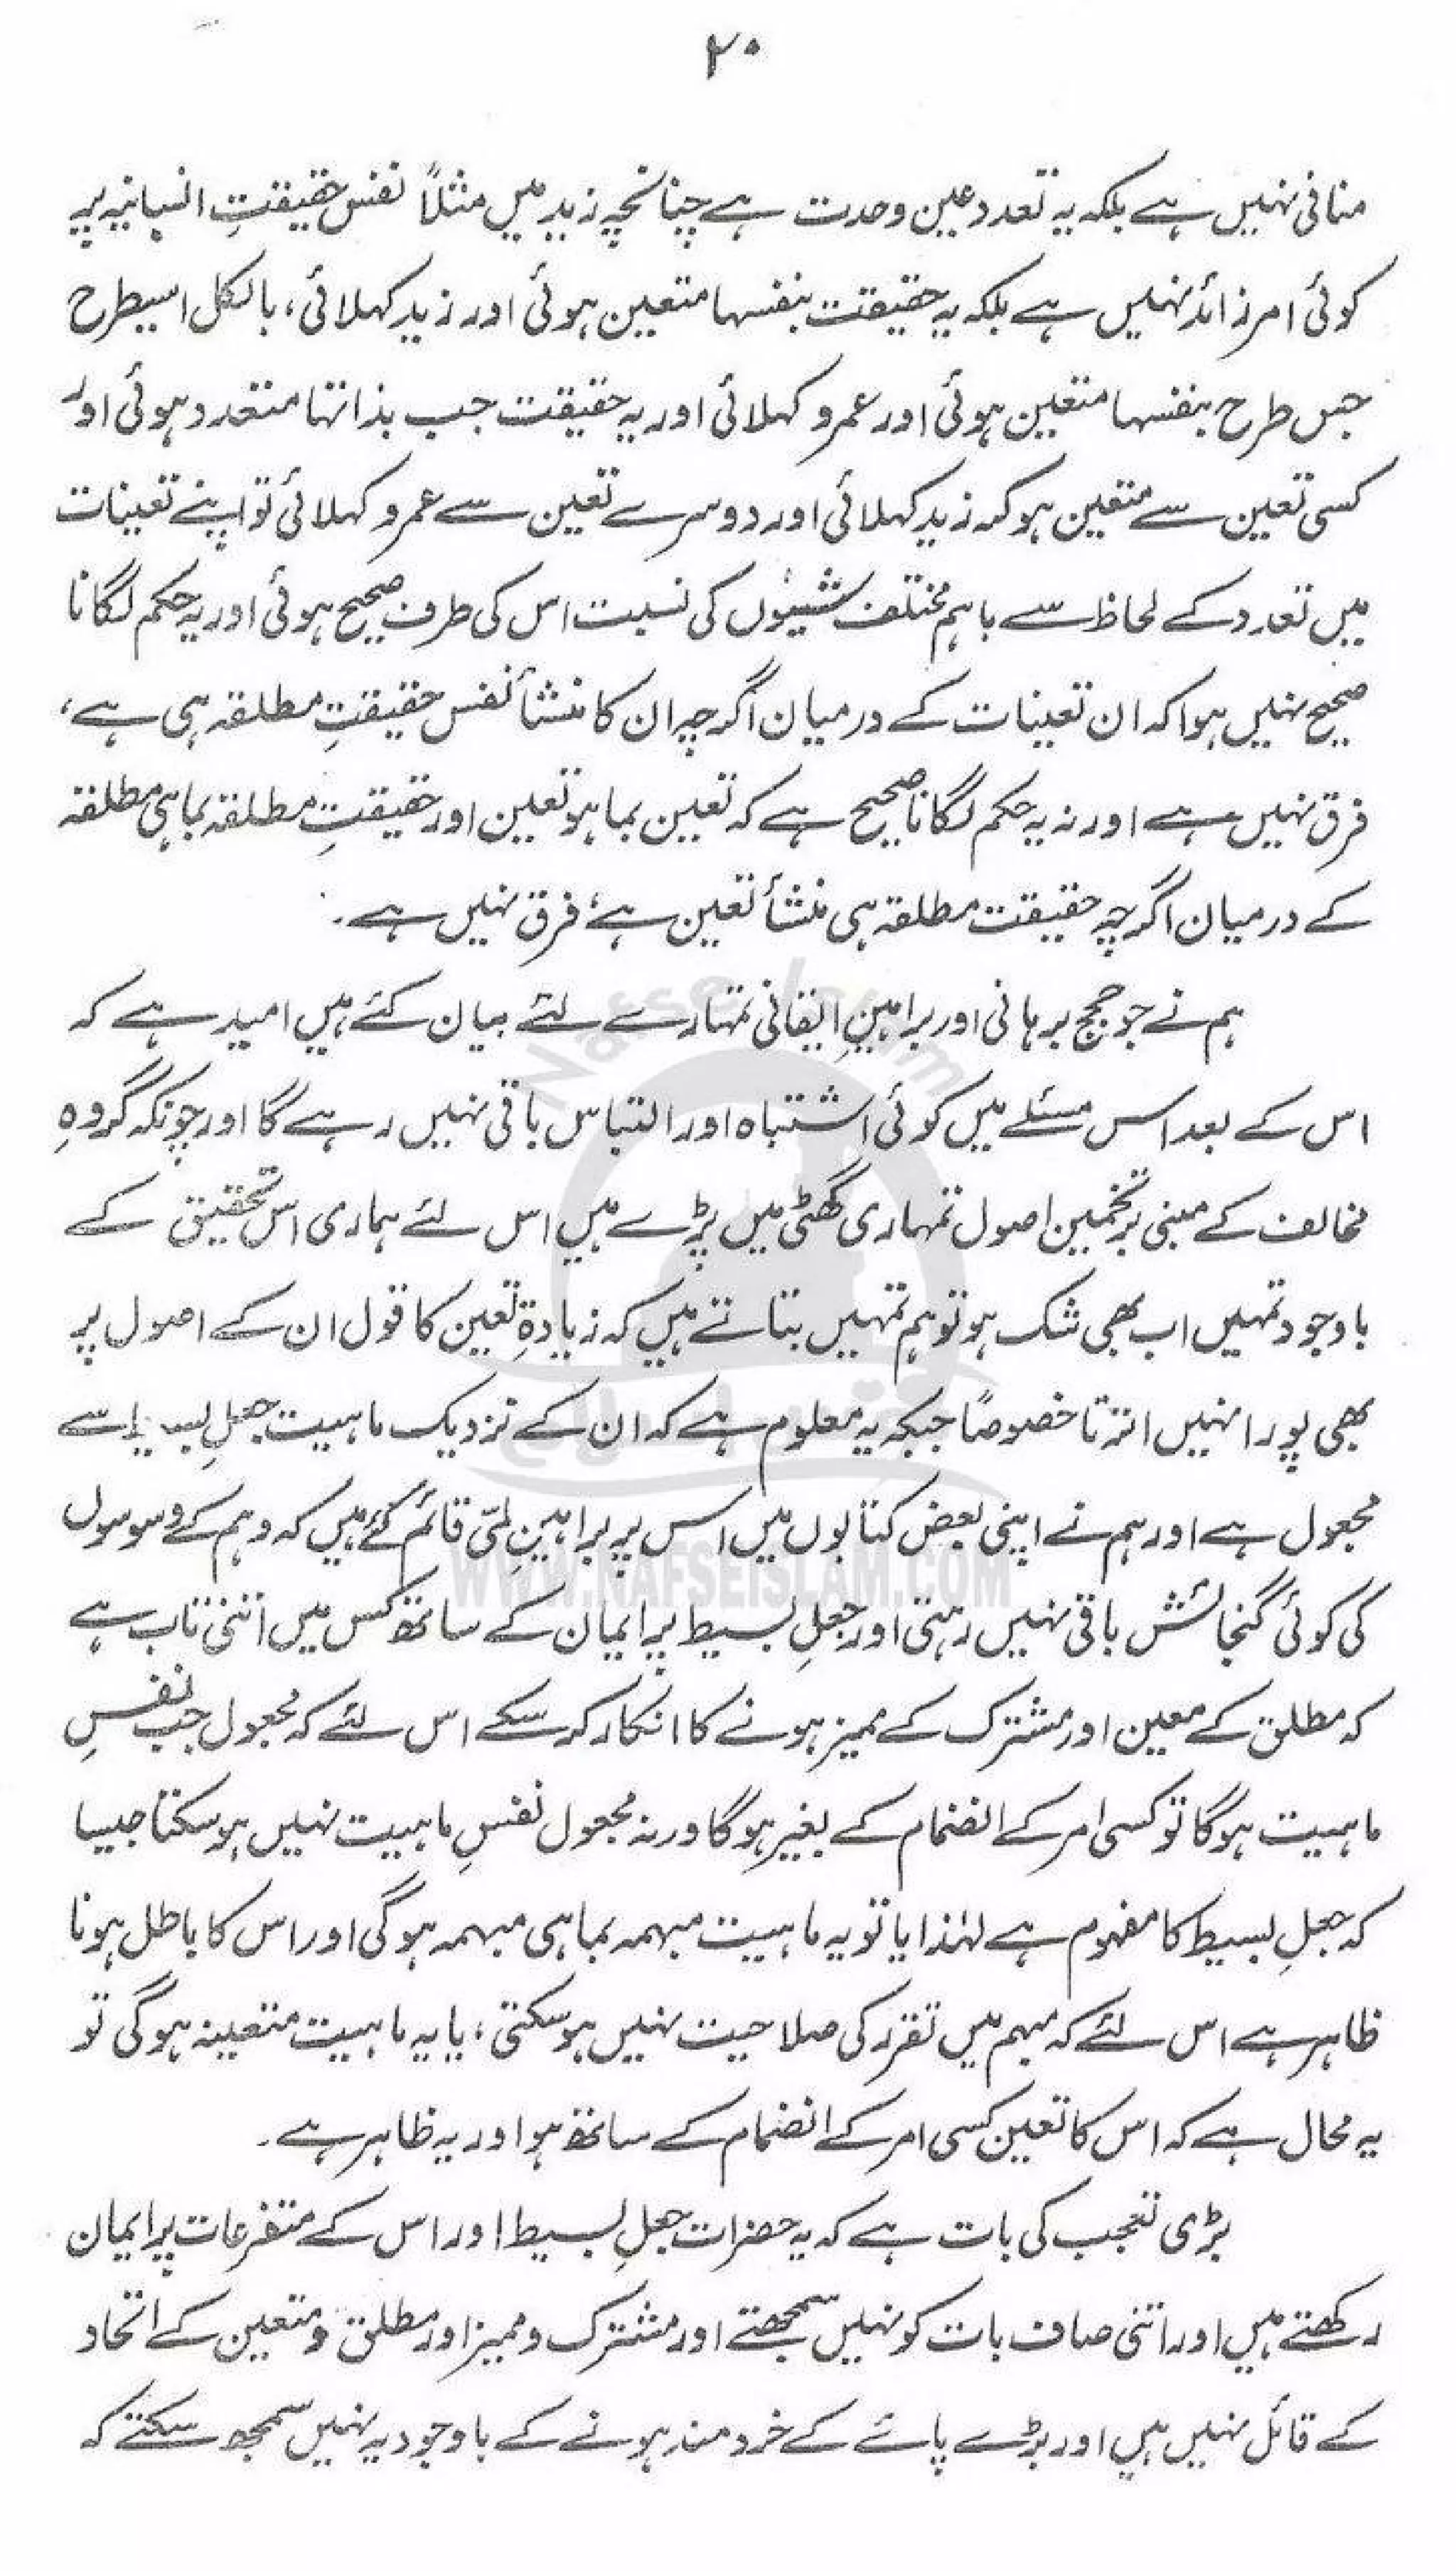 ۲۰
منافی نہیں ہے بلکہ یہ تعدد عین وحدت ہے چنانچہ زید میں مثلاً نفس حقیقتِ انسانیہ پر
کوئی امر زائد نہیں ہے بلکہ یہ حقیقت بنفسہا متعین ہوئی اور زید کہلائی، بالکل اسیطرح
جس طرح بنفسہا متعین ہوئی اور عمرو کہلائی اور یہ حقیقت جب بذاتہا متعدد ہوئی اور
کسی تعین سے متعین ہو کر زید کہلائی اور دوسرے تعین سے عمرو کہلائی تو اپنے تعینات
میں تعدد کے لحاظ سے باہم مختلف شیئوں کی نسبت اس کی طرف صحیح ہوئی اور یہ حکم لگانا
صحیح نہیں ہوا کہ ان تعینات کے درمیان اگرچہ ان کا منشأ نفس حقیقتِ مطلقہ ہی ہے،
فرق نہیں ہے اور نہ یہ حکم لگانا صحیح ہے کہ تعین بما ہو تعین اور حقیقتِ مطلقہ بما ہی مطلقہ
کے درمیان اگرچہ حقیقت مطلقہ ہی منشأ تعین ہے، فرق نہیں ہے۔
ہم نے جو حجج برہانی اور براہینِ ایقانی تمہارے لئے بیان کئے ہیں امید ہے کہ
اس کے بعد اس مسئلے میں کوئی اشتباہ اور التباس باقی نہیں رہے گا اور چونکہ گروہِ
مخالف کے مبنی بر تخمین اصول تمہاری گھٹی میں پڑے ہیں اس لئے ہماری اس تحقیق کے
باوجود تمہیں اب بھی شک ہو تو ہم تمہیں بتاتے ہیں کہ زیادۃِ تعین کا قول ان کے اصول پر
بھی پورا نہیں اترتا خصوصًا جبکہ یہ معلوم ہے کہ ان کے نزدیک ماہیت جعلِ بسیط سے
مجعول ہے اور ہم نے اپنی بعض کتابوں میں اس پر براہینِ لمّی قائم کئے ہیں کہ وہم کے وسوسوں
کی کوئی گنجائش باقی نہیں رہتی اور جعلِ بسیط پر ایمان کے ساتھ کس میں اتنی تاب ہے
کہ مطلق کے معین اور مشترک کے ممیز ہونے کا انکار کر سکے اس لئے کہ مجعول جب نفسِ
ماہیت ہوگا تو کسی امر کے انضمام کے بغیر ہوگا ورنہ مجعول نفسِ ماہیت نہیں ہو سکتا جیسا
کہ جعلِ بسیط کا مفہوم ہے لہٰذا یا تو یہ ماہیت مبہمہ بما ہی مبہمہ ہوگی اور اس کا باطل ہونا
ظاہر ہے اس لئے کہ مبہم میں تقرر کی صلاحیت نہیں ہو سکتی، یا یہ ماہیت متعینہ ہوگی تو
یہ محال ہے کہ اس کا تعین کسی امر کے انضمام کے ساتھ ہو اور یہ ظاہر ہے۔
بڑی تعجب کی بات ہے کہ یہ حضرات جعلِ بسیط اور اس کے متفرعات پر ایمان
رکھتے ہیں اور اتنی صاف بات کو نہیں سمجھتے اور مشترک و ممیز اور مطلق و متعین کے اتحاد
کے قائل نہیں ہیں اور بڑے پائے کے خرد مند ہونے کے باوجود یہ نہیں سمجھ سکتے کہ
Nafse Islam
نفس اسلام
WWW.NAFSEISLAM.COM